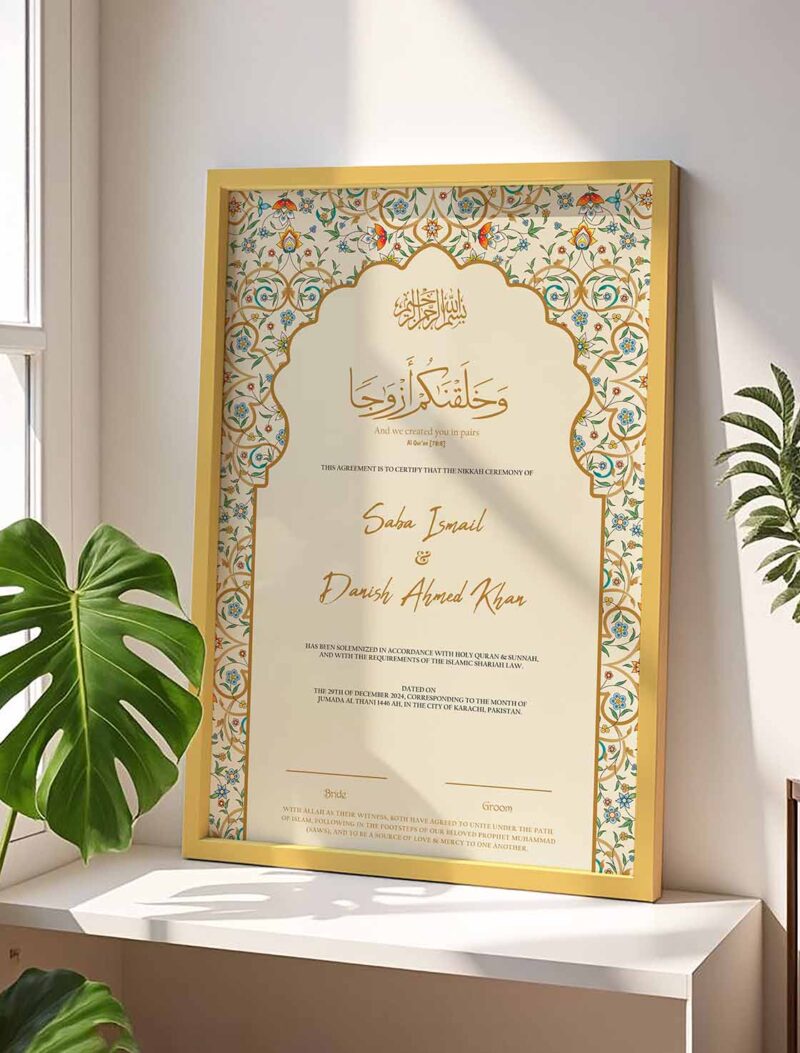 بسم الله الرحمن الرحيم
وَخَلَقْنَٰكُمْ أَزْوَٰجًا
And we created you in pairs
Al Qur'an [78:8]
THIS AGREEMENT IS TO CERTIFY THAT THE NIKKAH CEREMONY OF
Saba Ismail
&
Danish Ahmed Khan
HAS BEEN SOLEMNIZED IN ACCORDANCE WITH HOLY QURAN & SUNNAH,
AND WITH THE REQUIREMENTS OF THE ISLAMIC SHARIAH LAW.
DATED ON
THE 29TH OF DECEMBER 2024, CORRESPONDING TO THE MONTH OF
JUMADA AL THANI 1446 AH, IN THE CITY OF KARACHI, PAKISTAN.
Bride
Groom
WITH ALLAH AS THEIR WITNESS, BOTH HAVE AGREED TO UNITE UNDER THE PATH
OF ISLAM, FOLLOWING IN THE FOOTSTEPS OF OUR BELOVED PROPHET MUHAMMAD
(SAWS), AND TO BE A SOURCE OF LOVE & MERCY TO ONE ANOTHER.